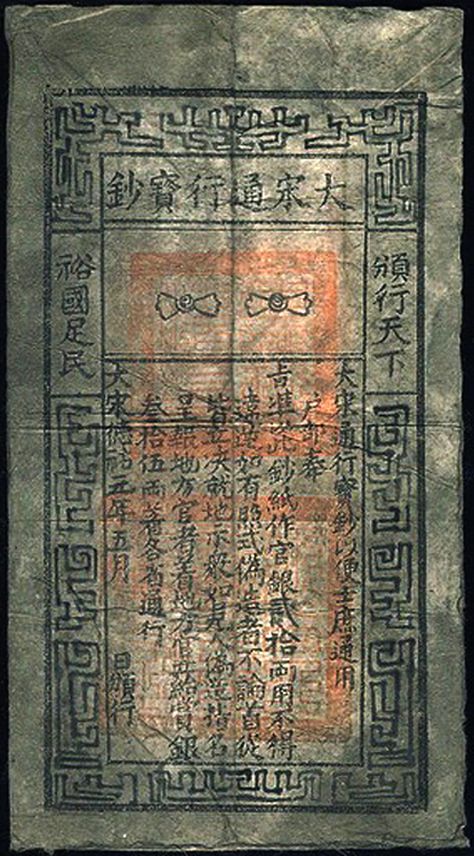 大宋通行寶鈔
頒行天下
裕國足民
大宋通行寶鈔以便士庶通用
戶部奉
旨准此鈔紙作官銀貳拾兩用不得
違逆如有照式偽造者不論首從
皆立決就地示衆如見人偽造指名
呈報地方官者着地方官立給賞銀
叁拾伍兩着各省通行
大宋德祐五年五月 日頒行